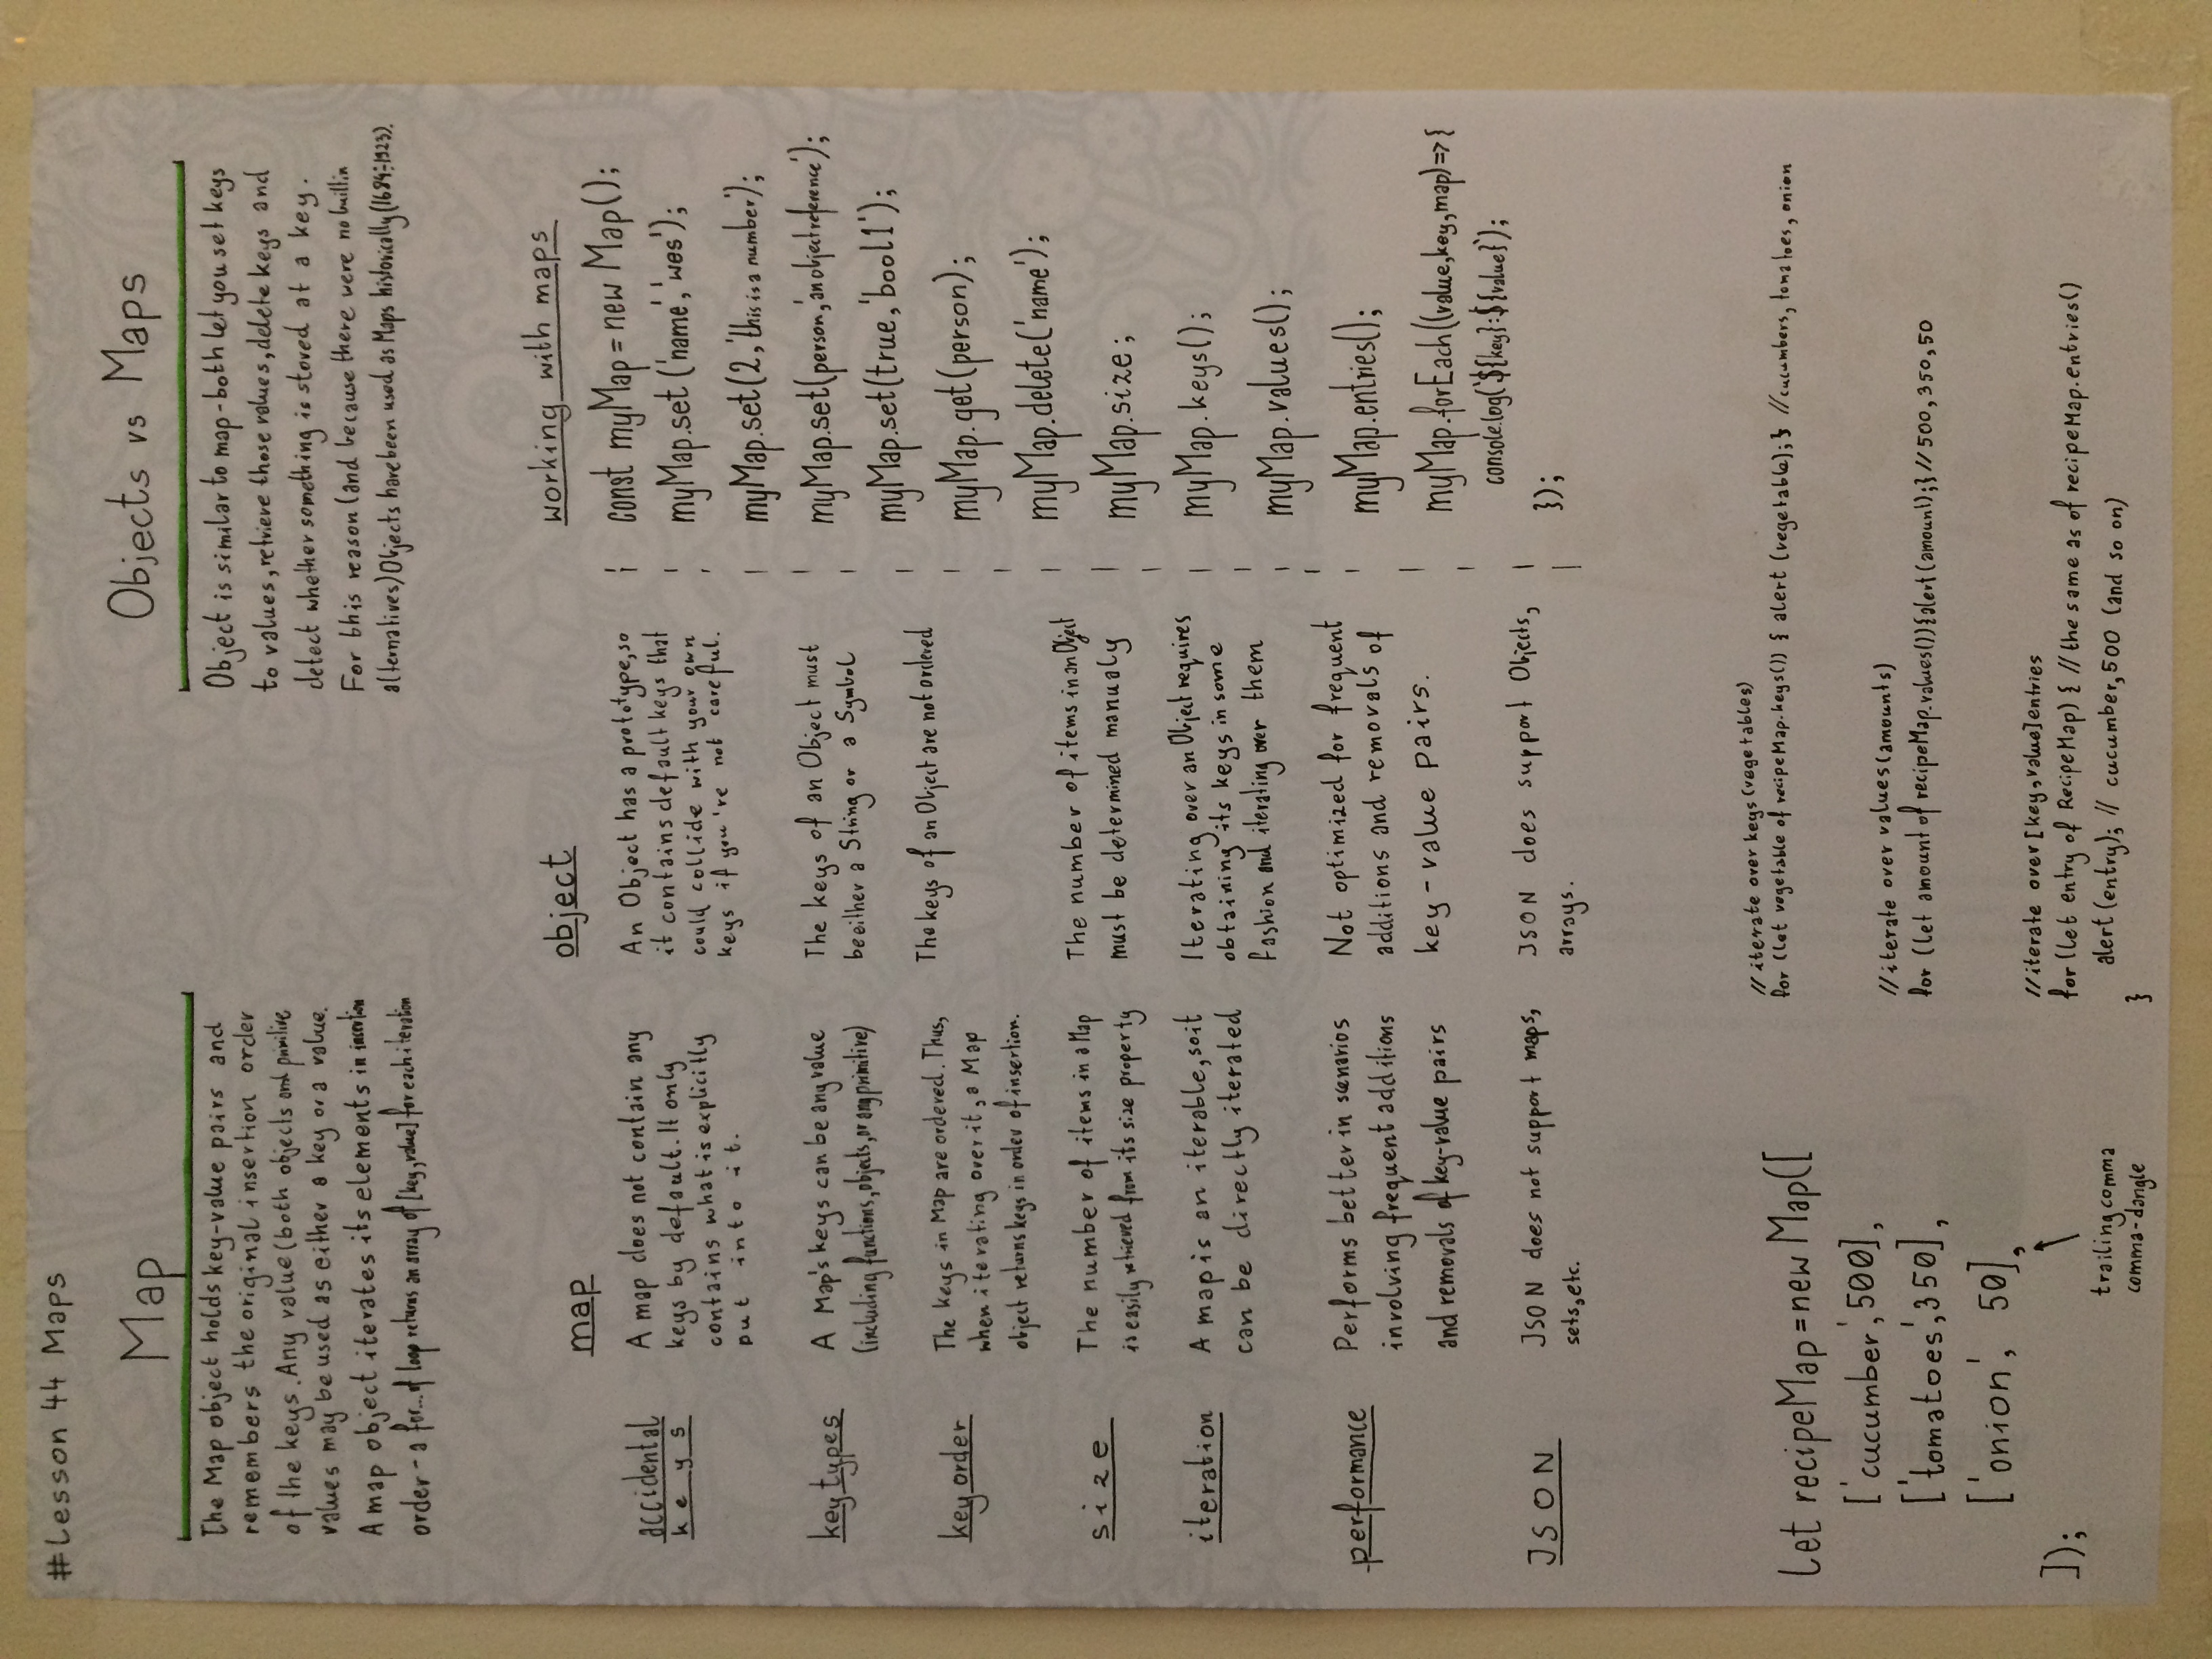 #Lesson 44 Maps
Map
The Map object holds key-value pairs and
remembers the original insertion order
of the keys. Any value (both objects and primitive
values may be used as either a key or a value.
A map object iterates its elements in insertion
order - a for...of loop returns an array of [key,value] for each iteration
Objects vs Maps
Object is similar to map - both let you set keys
to values, retrieve those values, delete keys and
detect whether something is stored at a key.
For this reason (and because there were no builtin
alternatives) Objects have been used as Maps historically (1684÷1923).
map
object
accidental
keys
A map does not contain any
keys by default. It only
contains what is explicitly
put into it.
An Object has a prototype, so
it contains default keys that
could collide with your own
keys if you're not careful.
key types
A Map's keys can be any value
(including functions, objects, or any primitive)
The keys of an Object must
be either a String or a Symbol
key order
The keys in Map are ordered. Thus,
when iterating over it, a Map
object returns keys in order of insertion.
The keys of an Object are not ordered
size
The number of items in a Map
is easily retrieved from its size property
The number of items in an Object
must be determined manualy
iteration
A map is an iterable, so it
can be directly iterated
Iterating over an Object requires
obtaining its keys in some
fashion and iterating over them
performance
Performs better in scenarios
involving frequent additions
and removals of key-value pairs
Not optimized for frequent
additions and removals of
key-value pairs.
JSON
JSON does not support maps,
sets, etc.
JSON does support Objects,
arrays.
working with maps
const myMap = new Map();
myMap.set('name','wes');
myMap.set(2,'this is a number');
myMap.set(person,'an object reference');
myMap.set(true,'bool1');
myMap.get(person);
myMap.delete('name');
myMap.size;
myMap.keys();
myMap.values();
myMap.entries();
myMap.forEach((value,key,map)=>{
console.log(`${key}:${value}`);
});
let recipeMap = new Map([
['cucumber',500],
['tomatoes',350],
['onion', 50],
]);
trailing comma
comma-dangle
// iterate over keys (vegetables)
for (let vegetable of recipeMap.keys()) { alert (vegetable); } //cucumbers, tomatoes, onion
//iterate over values (amounts)
for (let amount of recipeMap.values()){alert (amount);} // 500, 350, 50
//iterate over [key, value] entries
for (let entry of RecipeMap) { // the same as of recipeMap.entries()
alert (entry); // cucumber,500 (and so on)
}